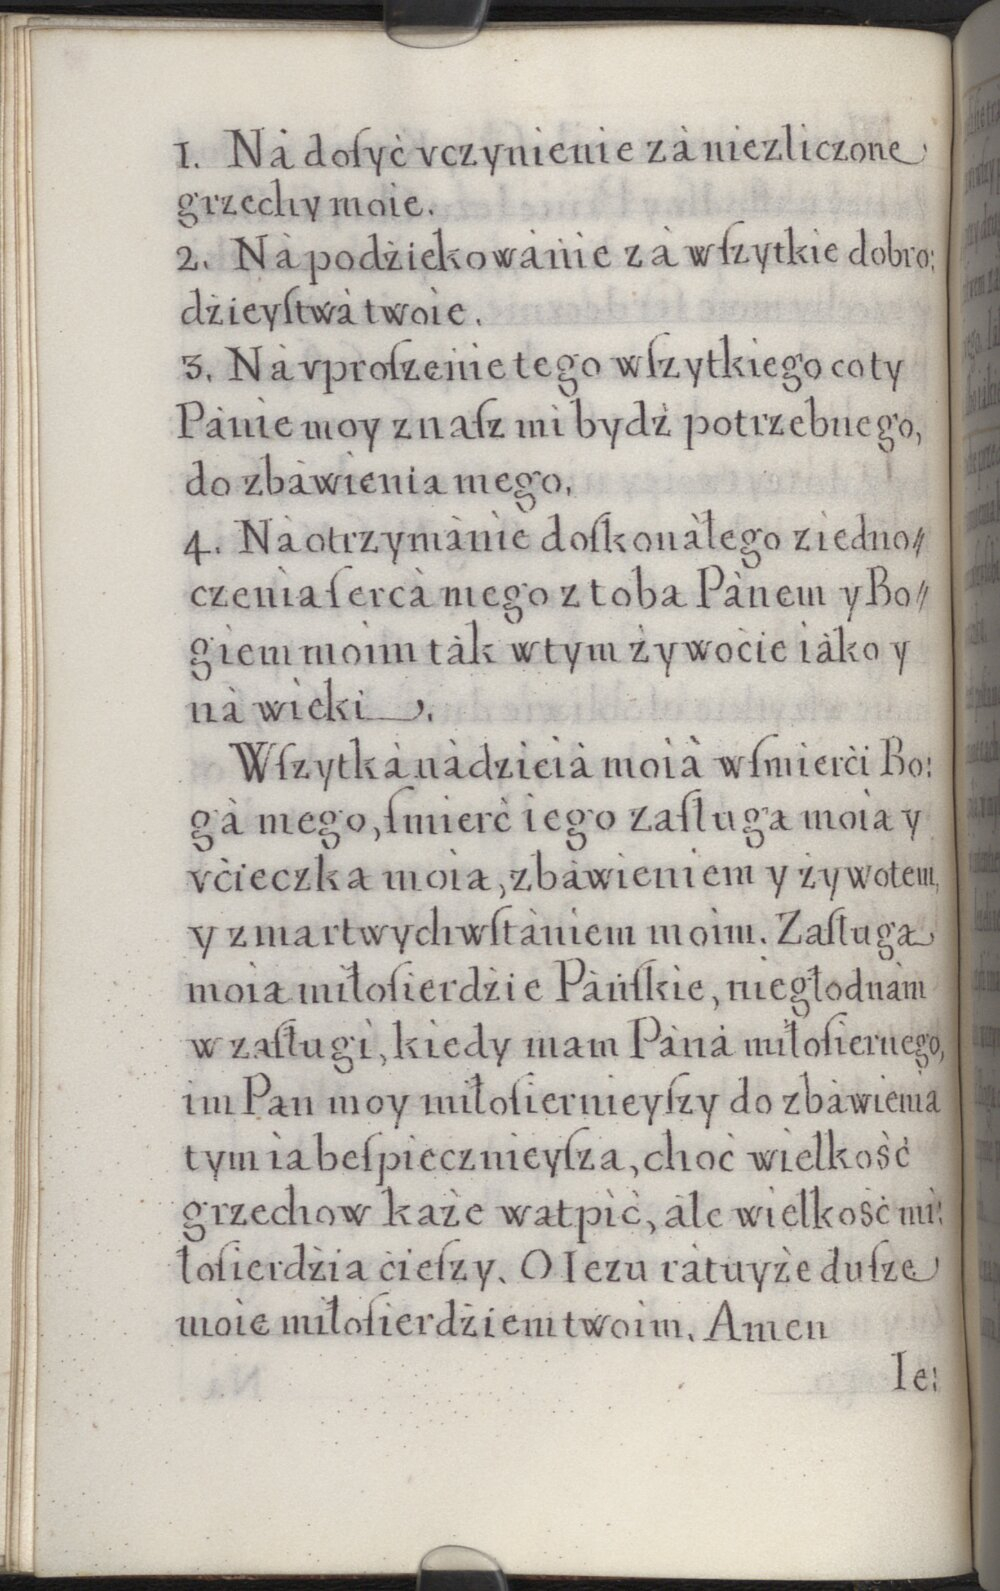 1. Ná dosyć vczynienie zá niezliczone
grzechy moie.
2. Ná podźiekowánie zá wſzytkie dobro:
dźieyſtwá twoie.
3. Ná vproſzenie tego wſzytkiego co ty
Pánie moy znaſz mi bydź potrzebnego,
do zbáwienia mego.
4. Ná otrzymánie doſkonáłego ziedno//
czenia ſercá mego z toba Pánem y Bo//
giem moim ták w tym żywoćie iáko y
ná wieki.
Wſzytká nádzieiá moiá w śmierći Bo:
gá mego, śmierć iego zaſługa moia y
vćieczka moia, zbáwieniem y żywotem,
y zmartwychwſtániem moim. Zaſługa
moia miłoſierdźie Páńſkie, niegłodnám
w zaſługi, kiedy mam Páná miłoſiernego,
im Pan moy miłoſiernieyſzy do zbáwienia
tym ia beſpiecznieyſza, choć wielkość
grzechow każe watpić, ále wielkość mi:
łoſierdźia ćieſzy. O Iezu rátuyże duſze
moie miłoſierdźiem twoim. Amen
Ie: